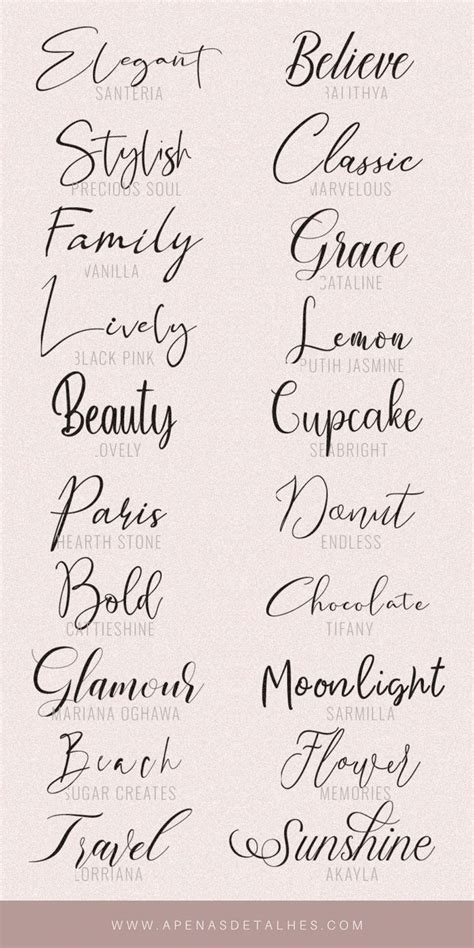 Elegant
SANTERIA
Believe
Stylish
PRECIOUS SOUL
Classic
MARVELOUS
Family
VANILLA
Grace
CATALINE
Lively
BLACK PINK
Lemon
PUTIH JASMINE
Beauty
LOVELY
Cupcake
SEABRIGHT
Paris
HEARTH STONE
Donut
ENDLESS
Bold
CATTIESHINE
Chocolate
TIFANY
Glamour
MARIANA OGHAWA
Moonlight
SARMILLA
Beach
SUGAR CREATES
Flower
MEMORIES
Travel
LORRIANA
Sunshine
AKAYLA
WWW.APENASDETALHES.COM